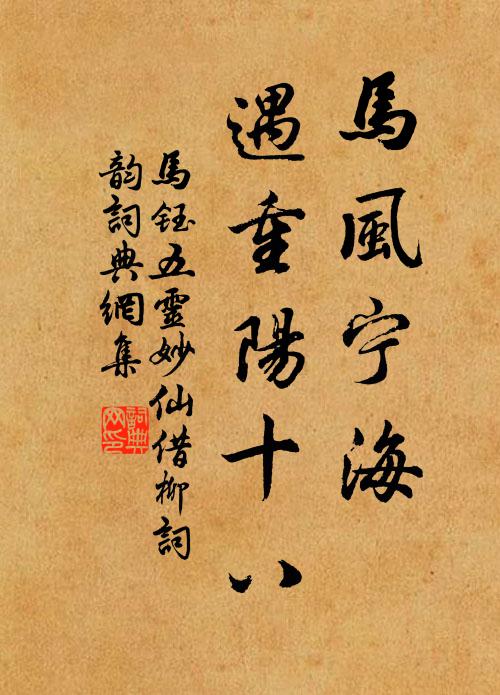 馬風宁海
遇重陽十八
馬鈺五靈妙仙借柳詞
韵詞典網集
詞典网印